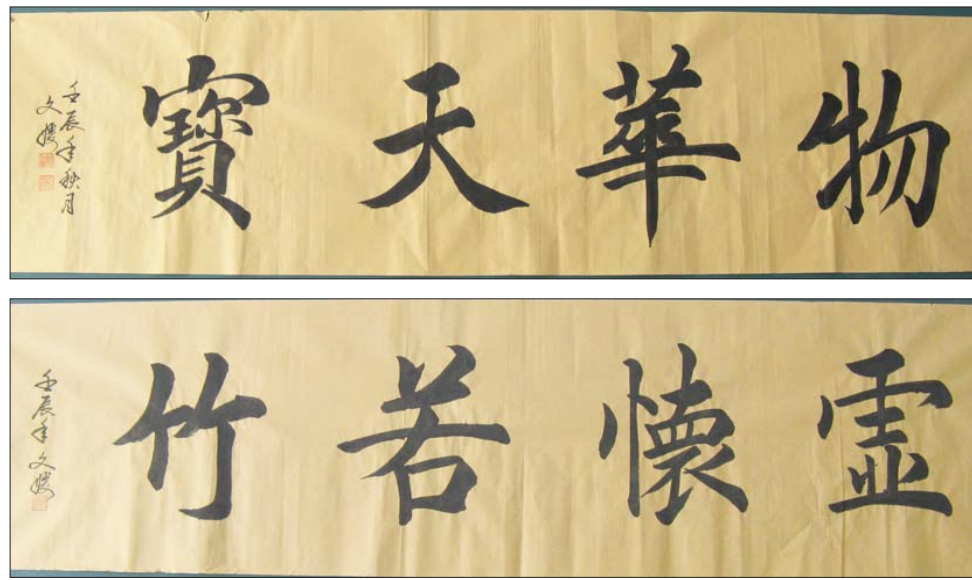 物華天寶
壬辰年秋月
文
虛懷若竹
壬辰年文